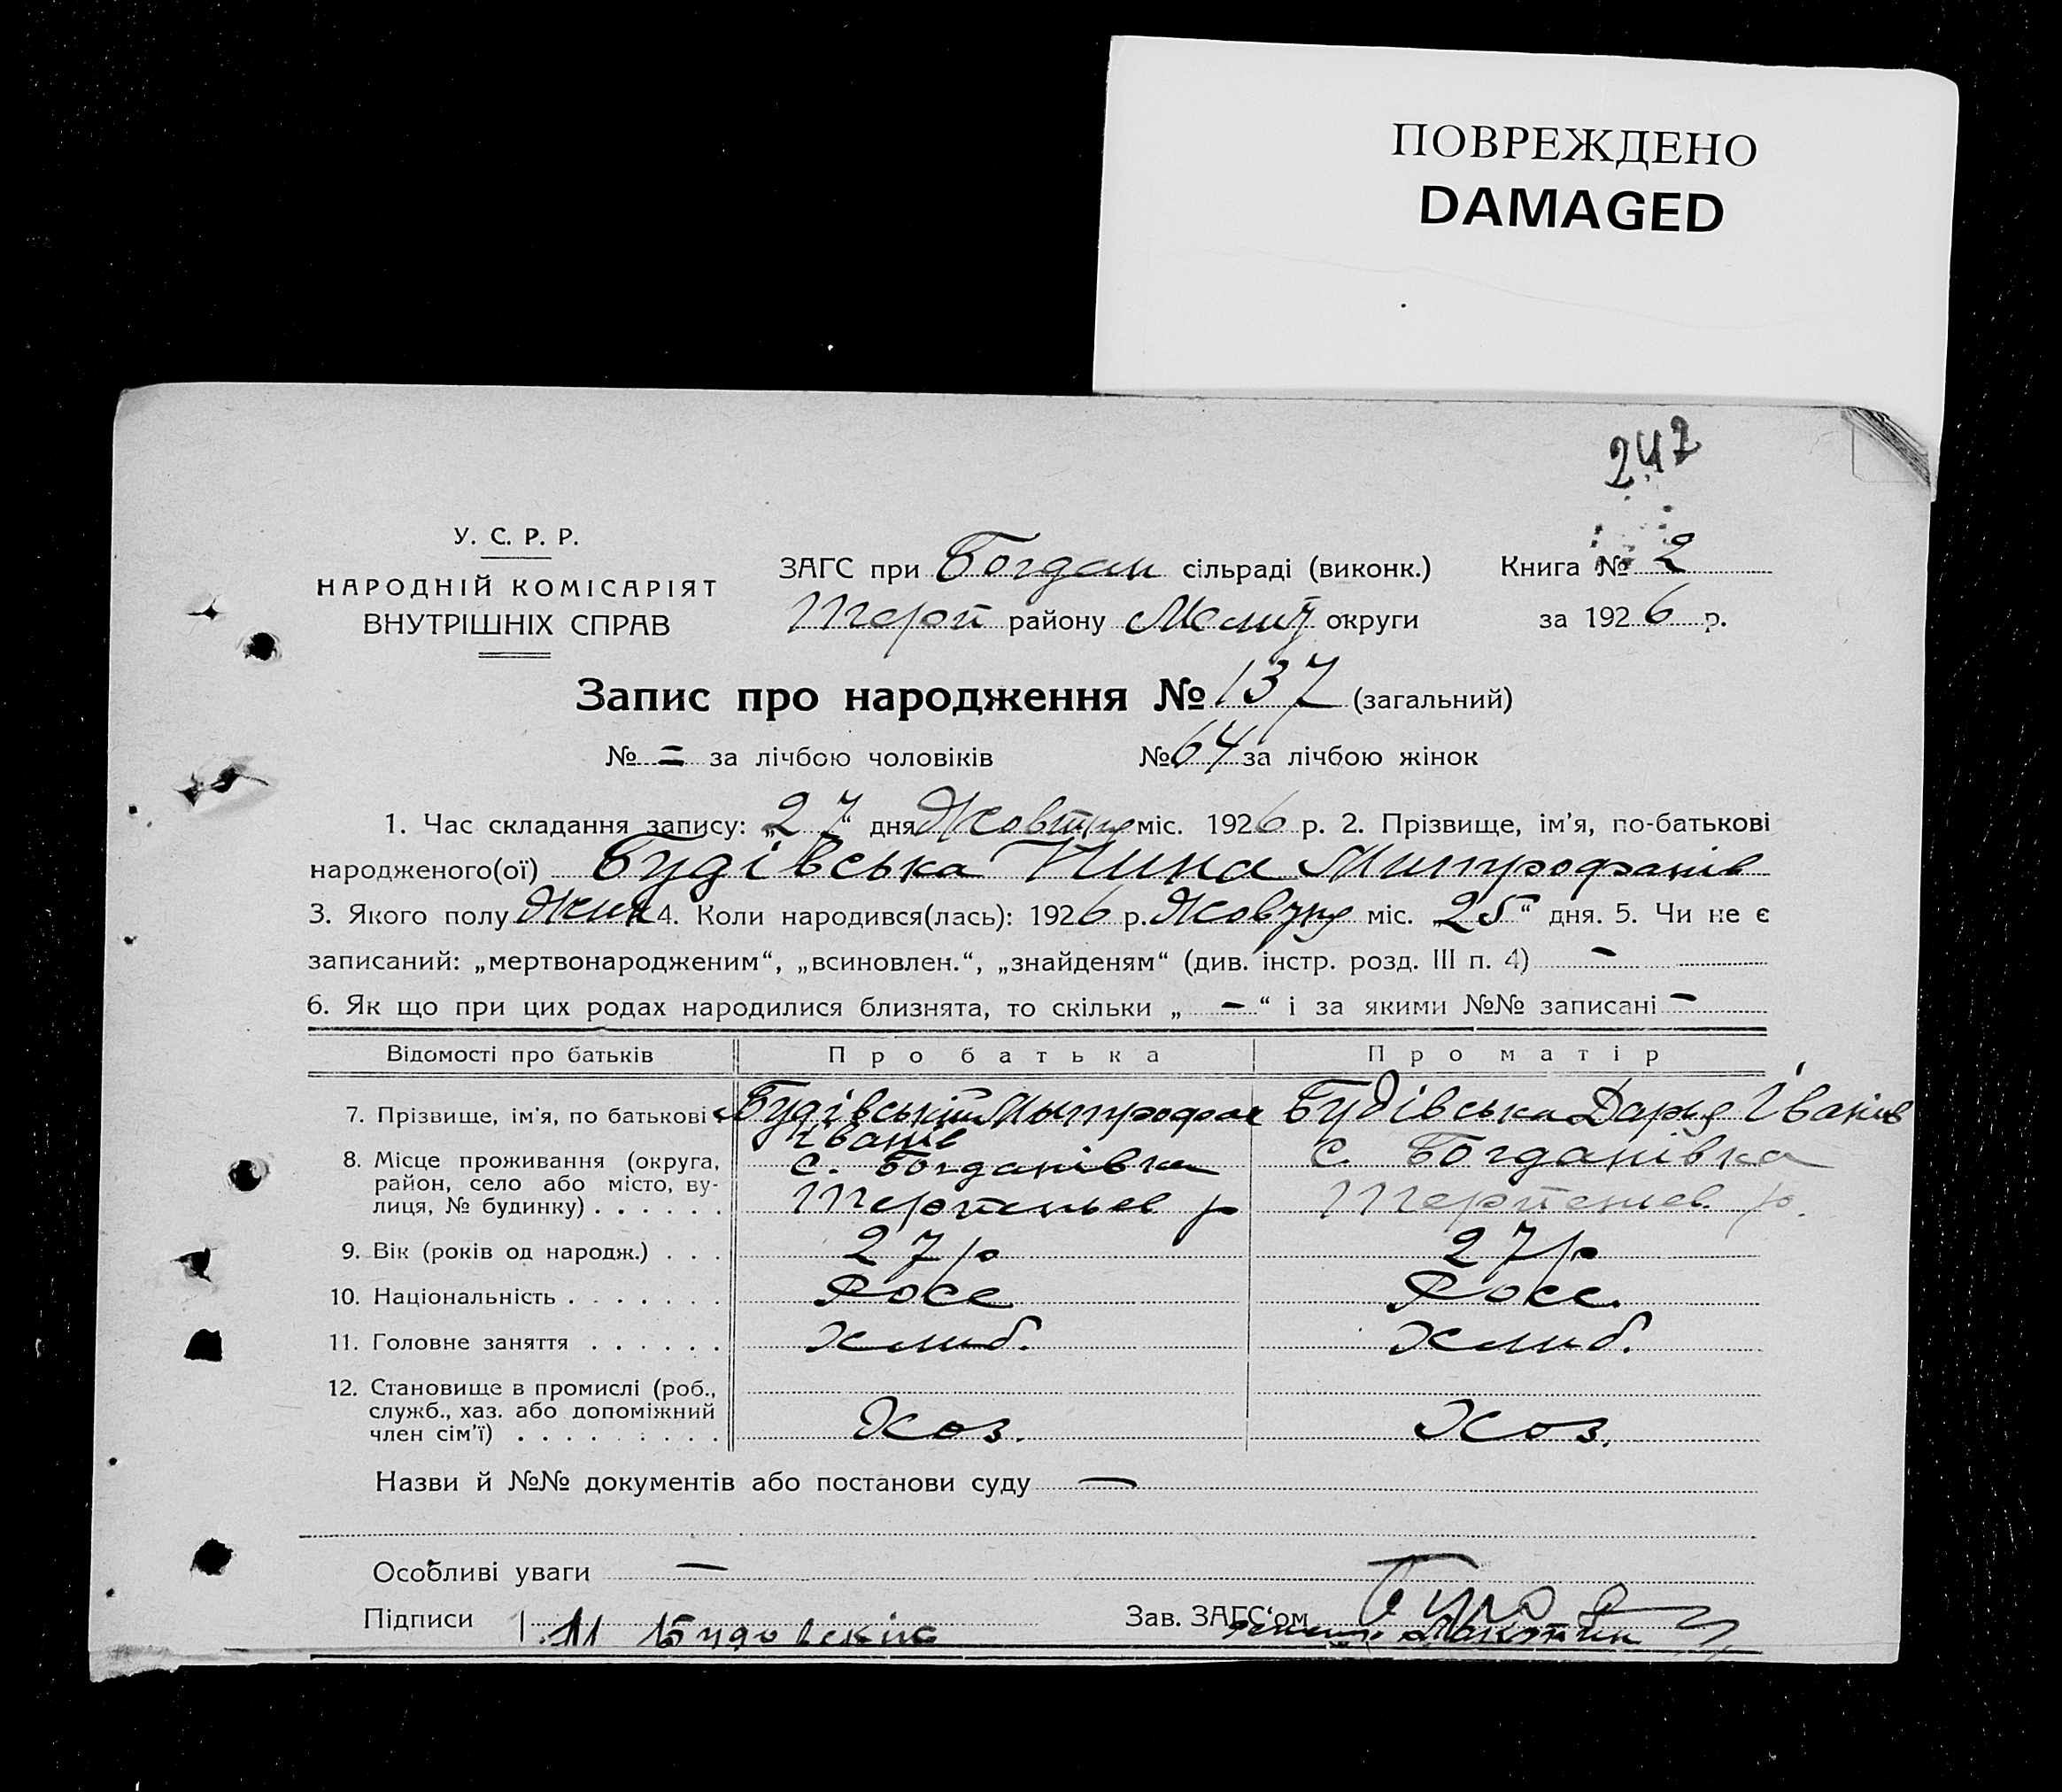 ПОВРЕЖДЕНО
DAMAGED
247
У. С. Р. Р.
НАРОДНІЙ КОМІСАРІЯТ
ВНУТРІШНІХ СПРАВ
ЗАГС при Богдан сільраді (виконк.)
Терп району Меліт округи
Книга № 2
за 1926 р.
Запис про народження № 137 (загальний)
№ = за лічбою чоловіків № 64 за лічбою жінок
1. Час складання запису: „27“ дня Жовтня міс. 1926 р. 2. Прізвище, ім'я, по-батькові
народженого(ої) Будівська Нина Митрофанів
3. Якого полу Жин 4. Коли народився(лась): 1926 р. Жовтня міс. „25“ дня. 5. Чи не є
записаний: „мертвонародженим“, „всиновлен.“, „знайденям“ (див. інстр. розд. III п. 4) –
6. Як що при цих родах народилися близнята, то скільки „ – “ і за якими №№ записані –
Відомості про батьків Про батька Про матір
7. Прізвище, ім'я, по батькові Будівський Митрофан Іванів Будівська Дарья Іванів
8. Місце проживання (округа, район, село або місто, вулиця, № будинку) . . . . . . с. Богданівка с. Богданівка
Терпеньев р Терпеньев р.
9. Вік (років од народж.) . . . 27 р 27 р
10. Національність . . . . . . . Росс Росс.
11. Головне заняття . . . . . . Хлиб. Хлиб.
12. Становище в промислі (роб., служб., хаз. або допоміжний член сім'ї) . . . . . . . . . Хоз. Хоз.
Назви й №№ документів або постанови суду —
Особливі уваги —
Підписи М Будовский Зав. ЗАГС'ом